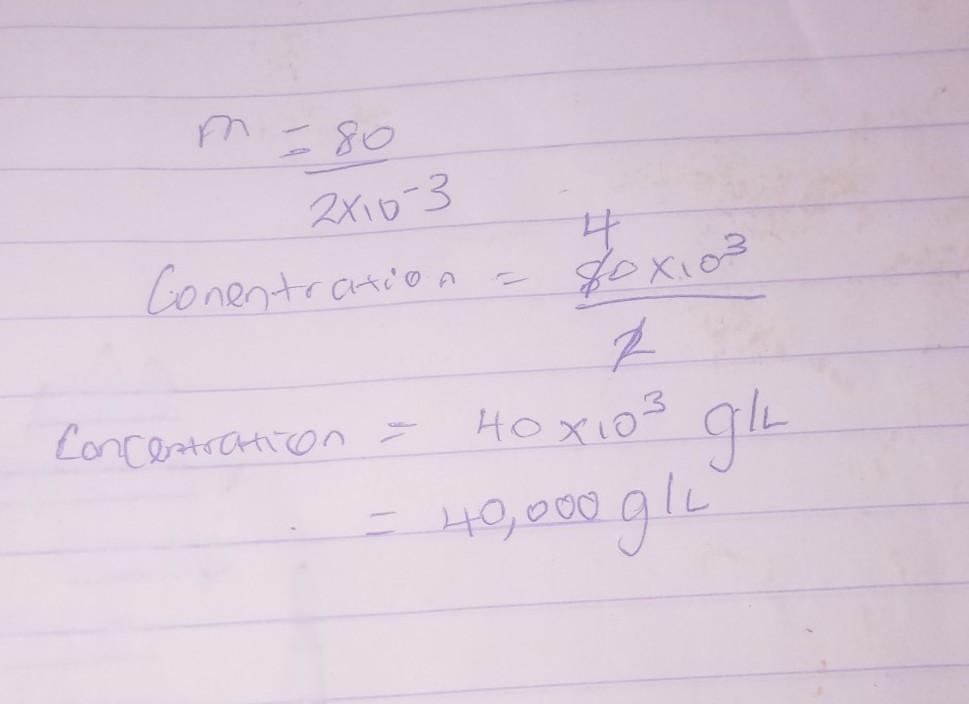 m = 80
2x10-3
4
Conentration = 80x10³
2
Concentration = 40x10³ g/L
= 40,000 g/L